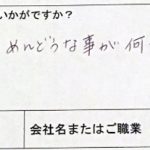 いかがですか?
めんどうな事が何
会社名またはご職業